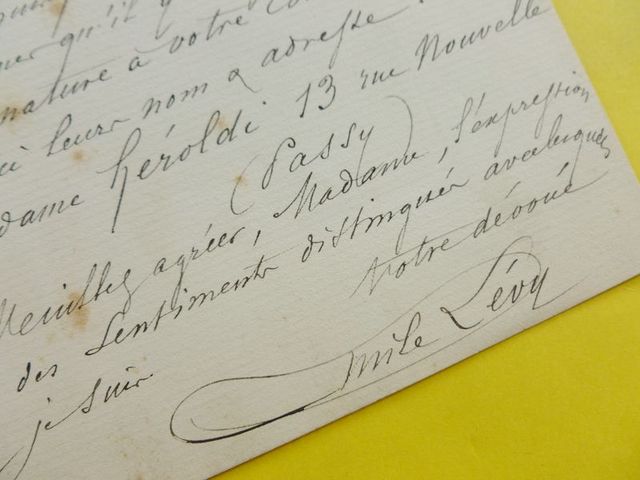 qu'il y
nature à votre
leurs noms & adresse
dame Héroldi 13 rue Nouvelle
(Passy)
Veuillez agréer, Madame, l'expression
des Sentiments distingués avec lesquels
je suis
Votre dévoué
Emile Lévy